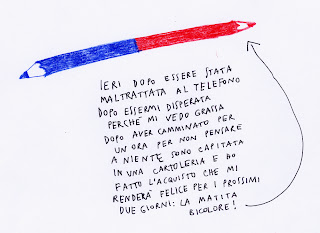 IERI DOPO ESSERE STATA
MALTRATTATA AL TELEFONO
DOPO ESSERMI DISPERATA
PERCHÈ MI VEDO GRASSA
DOPO AVER CAMMINATO PER
UN'ORA PER NON PENSARE
A NIENTE SONO CAPITATA
IN UNA CARTOLERIA E HO
FATTO L'ACQUISTO CHE MI
RENDERÀ FELICE PER I PROSSIMI
DUE GIORNI: LA MATITA
BICOLORE!